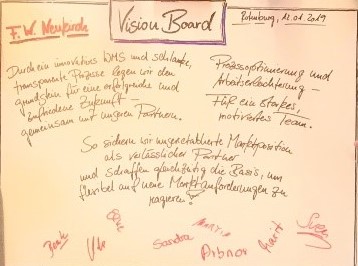 F.W. Neukirch
Vision Board
Rotenburg, 12.01.2019
Durch ein innovatives WMS und schlanke,
transparente Prozesse legen wir den
grundstein für eine erfolgreiche und
zufriedene Zukunft –
gemeinsam mit unseren Partnern.
Prozessoptimierung und
Arbeitserleichterung –
Für ein starkes,
motiviertes Team.
So sichern wir unsere etablierte Marktposition
als verlässlicher Partner
und schaffen gleichzeitig die Basis, um
flexibel auf neue Marktanforderungen zu
reagieren!
Ute
Sandra
Arbnor
Marit
Sven